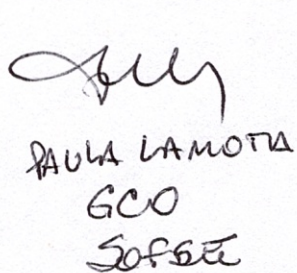 PAULA LAMOTTA
GCO
SOFSE